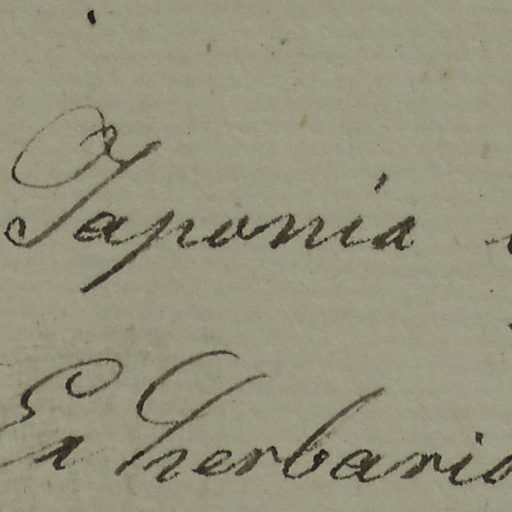 Japonia
Ex Therbario